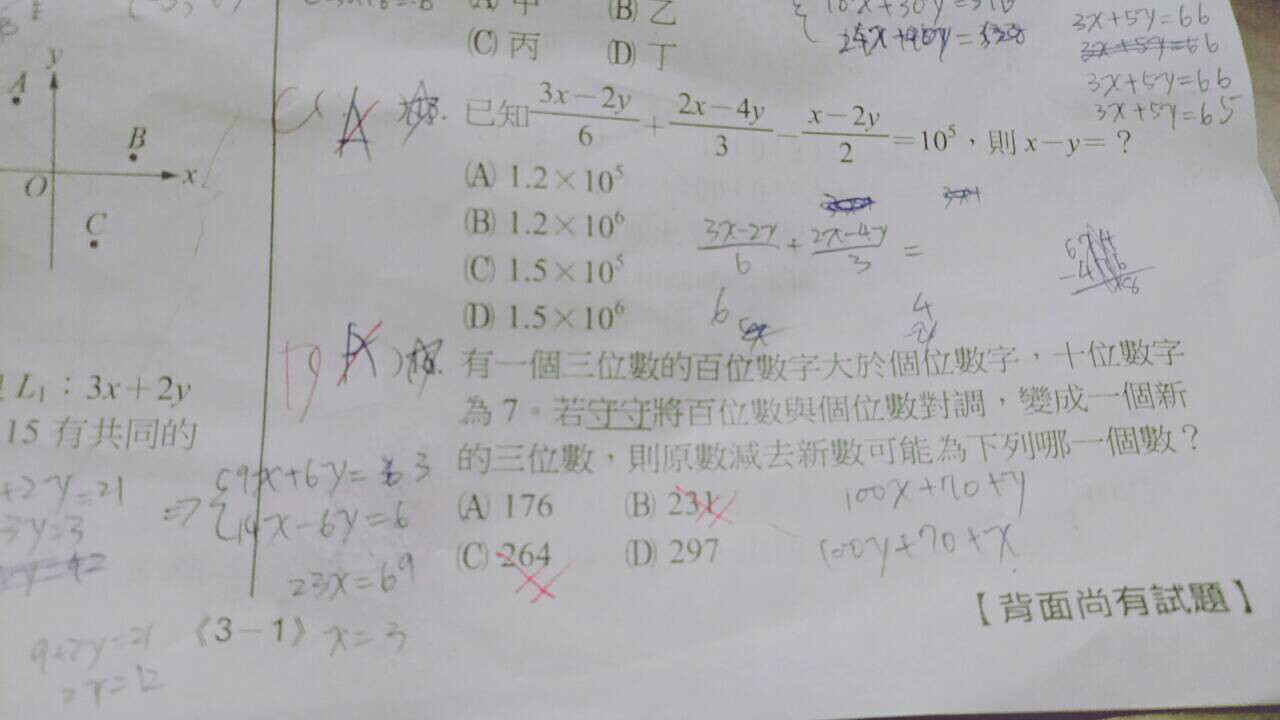 (A) 甲 (B) 乙
(C) 丙 (D) 丁
3x+5y=66
3x+5y=66
3x+5y=66
3x+5y=65
y
A
B
O
x
C
A
已知 (3x−2y)/6 + (2x−4y)/3 − (x−2y)/2 = 10⁵,則 x−y=?
(A) 1.2×10⁵
(B) 1.2×10⁶
(C) 1.5×10⁵
(D) 1.5×10⁶
(3x-2y)/6 + (2x-4y)/3 =
6
4
有一個三位數的百位數字大於個位數字,十位數字
為 7。若守守將百位數與個位數對調,變成一個新
的三位數,則原數減去新數可能為下列哪一個數?
(A) 176 (B) 231
(C) 264 (D) 297
100x+70+y
100y+70+x
【背面尚有試題】
L₁:3x+2y
15 有共同的
+2y=21
3y=3
⇒ { 9x+6y=63
14x-6y=6
23x=69
x=3
9+2y=21
《3-1》